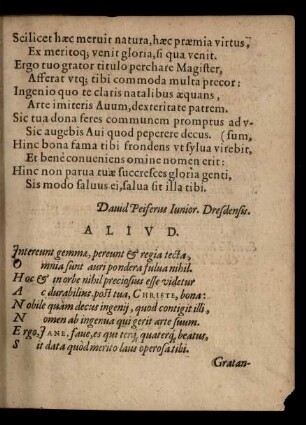 Scilicet hæc meruit natura, hæc præmia virtus,
Ex meritoq; venit gloria, si qua venit.
Ergo tuo grator titulo perchare Magister,
Afferat vtq; tibi commoda multa precor:
Ingenio quo te claris natalibus æquans,
Arte imiteris Auum, dexteritate patrem.
Sic tua dona feres communem promptus ad v-
Sic augebis Aui quod peperere decus. (sum,
Hinc bona fama tibi frondens vt sylua virebit,
Et benè conueniens omine nomen erit:
Hinc non parua tuæ succresces gloria genti,
Sis modo saluus ei, salua sit illa tibi.
Dauid Peiferus Iunior. Dresdensis.
ALIVD.
Intereunt gemmæ, pereunt & regia tecta,
Omnia sunt auri pondera fulua nihil.
Hoc & in orbe nihil preciosius esse videtur
Ac durabilius, post tua, CHRISTE, bona:
Nobile quàm decus ingenij, quod contigit illi,
Nomen ab ingenua qui gerit arte suum.
Ergo, IANE, faue, es qui terq, quaterq, beatus,
Sit data quòd merito laus operosa tibi.
Gratan-